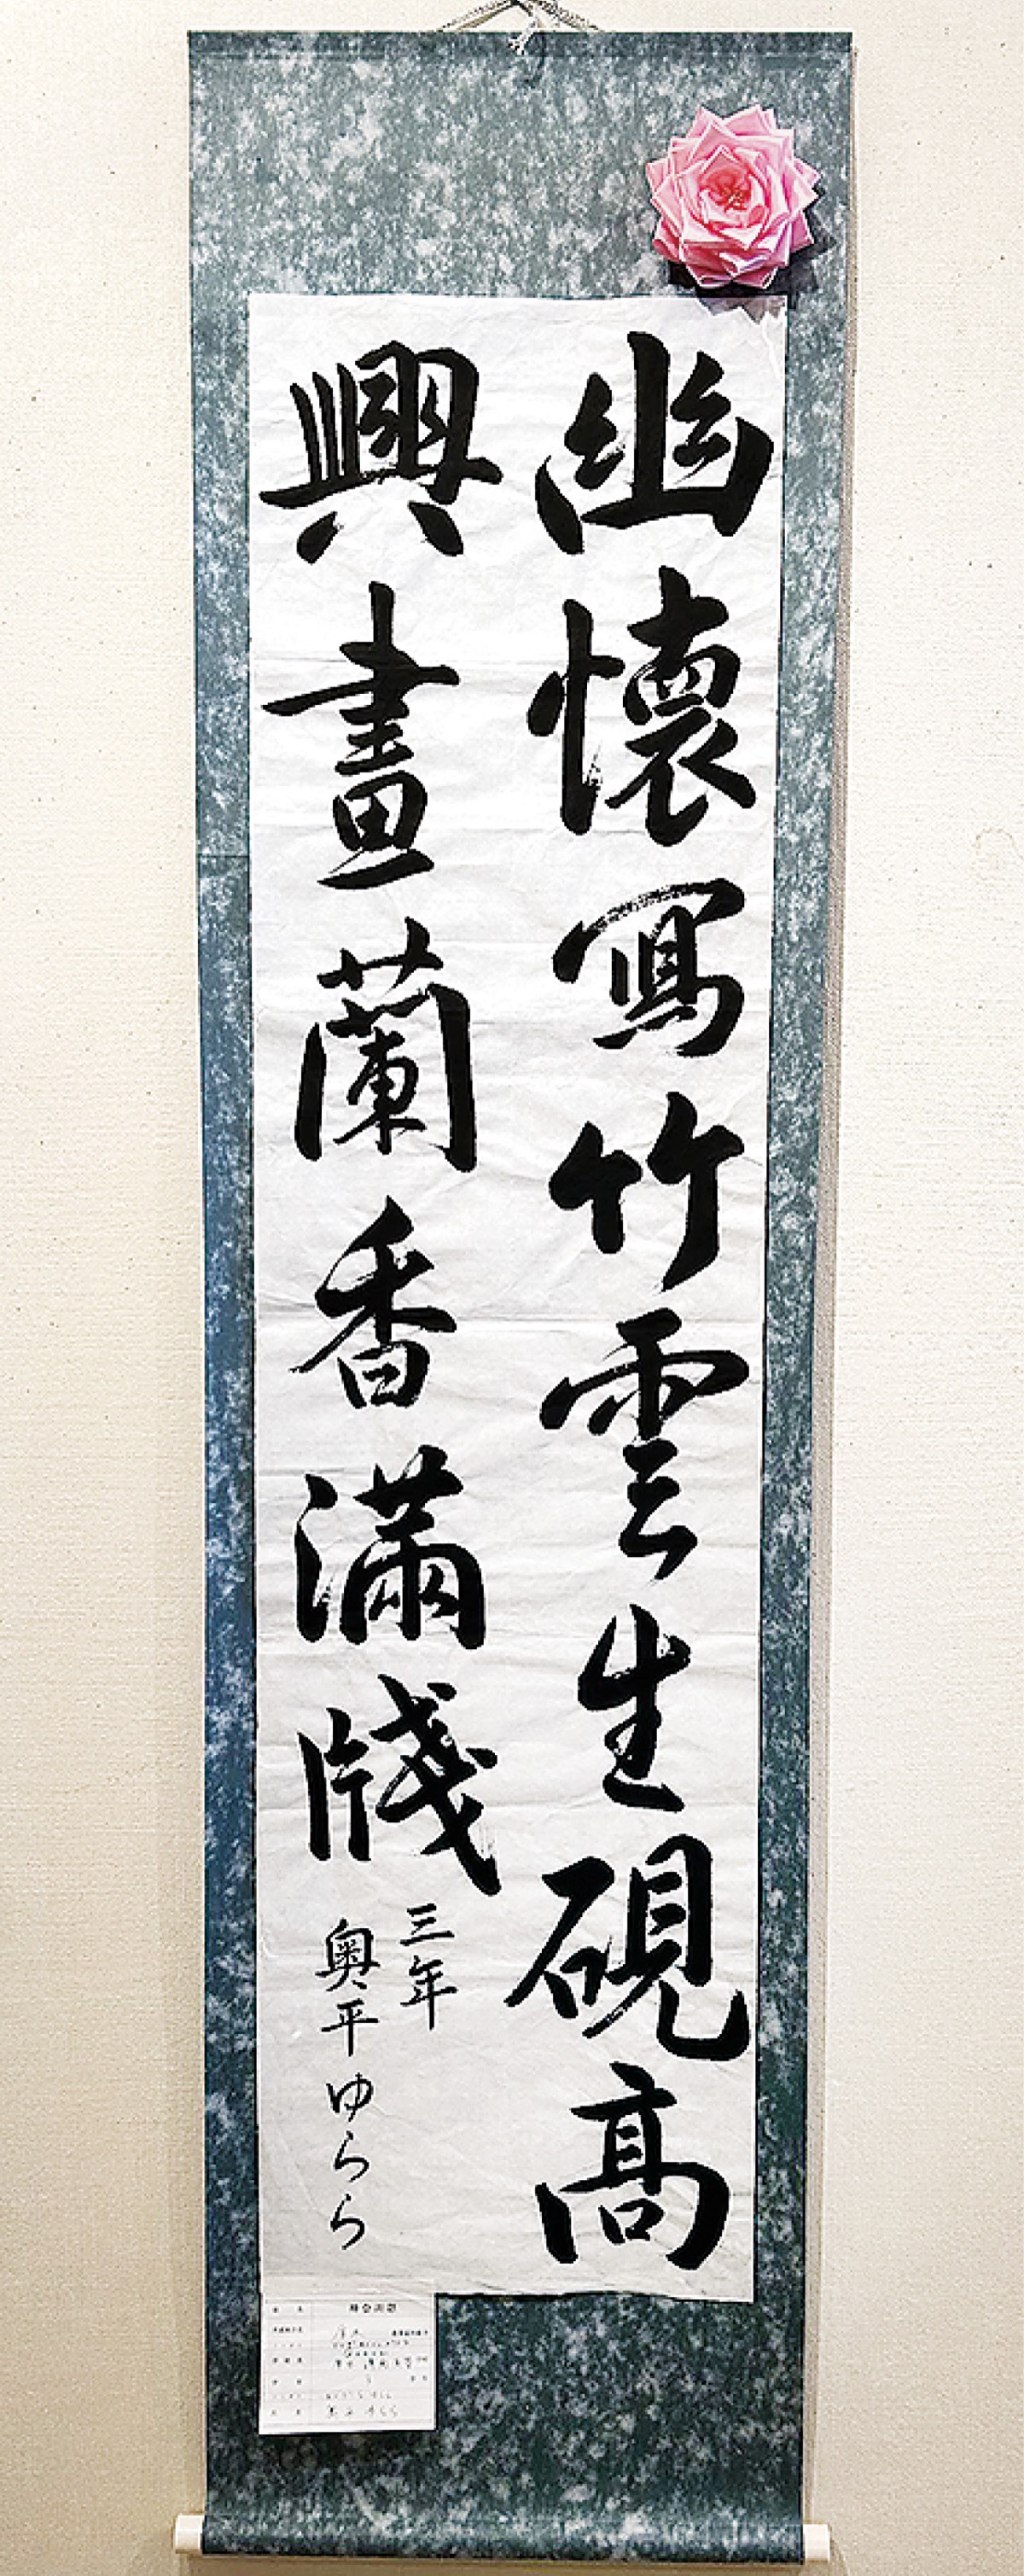 幽懷寫竹雲生硯高
興畫蘭香滿牋
三年
奥平ゆらら